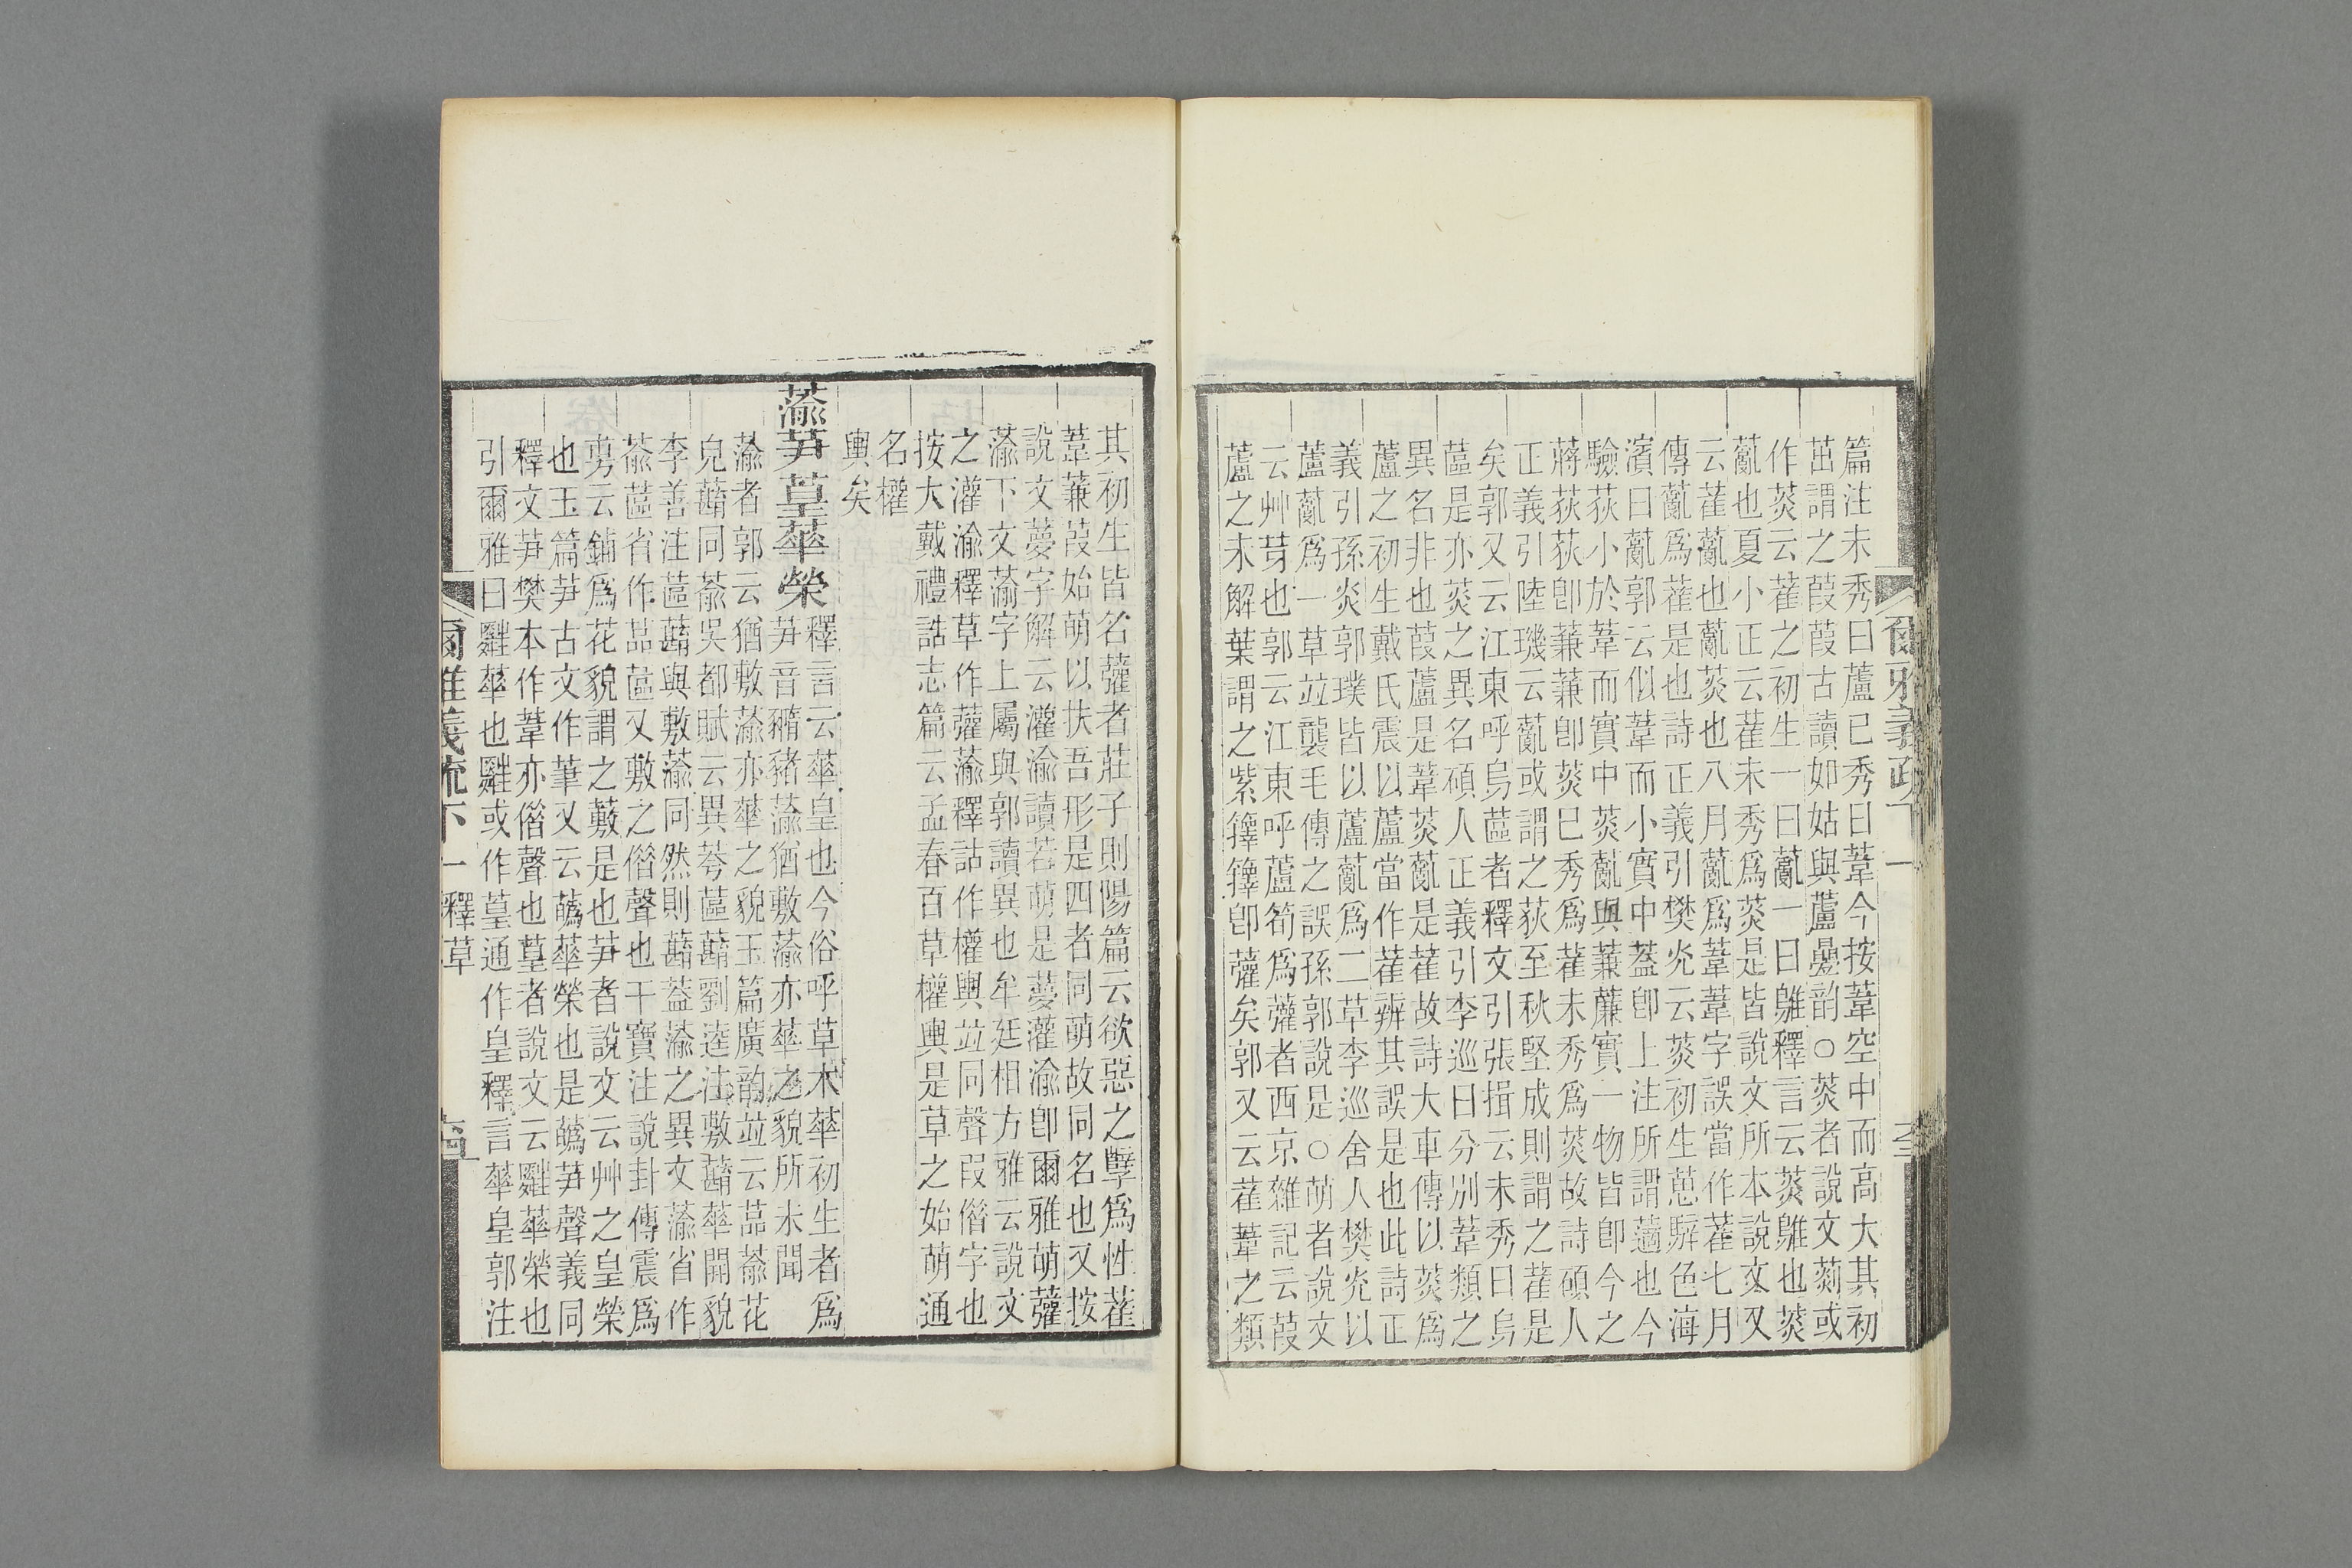 篇注未秀曰蘆已秀曰葦今按葦空中而高大其初
茁謂之葭葭古讀如姑與蘆疊韵○菼者說文䓤或
作菼云萑之初生一曰薍一曰鵻釋言云菼鵻也菼
薍也夏小正云萑未秀爲菼是皆說文所本說文又
云萑薍也薍菼也八月薍爲葦葦字誤當作萑七月
傳薍爲萑是也詩正義引樊光云菼初生葸騂色海
濱曰薍郭云似葦而小實中葢卽上注所謂薖也今
驗荻小於葦而實中菼薍與蒹薕實一物皆卽今之
蔣荻荻卽蒹蒹卽菼已秀爲萑未秀爲菼故詩碩人
正義引陸璣云薍或謂之荻至秋堅成則謂之萑是
矣郭又云江東呼烏蓲者釋文引張揖云未秀曰烏
蓲是亦菼之異名碩人正義引李巡曰分別葦類之
異名非也葭蘆是葦菼薍是萑故詩大車傳以菼爲
蘆之初生戴氏震以蘆當作萑辨其誤是也此詩正
義引孫炎郭璞皆以蘆薍爲二草李巡舍人樊光以
蘆薍爲一草竝襲毛傳之誤孫郭說是○萌者說文
云艸芽也郭云江東呼蘆筍爲虇者西京雜記云葭
蘆之未解葉謂之紫籜籜卽虇矣郭又云萑葦之類
爾雅義疏下一
其初生皆名虇者莊子則陽篇云欲惡之孼爲性萑
葦蒹葭始萌以扶吾形是四者同萌故同名也又按
說文夢字解云灌渝讀若萌是夢灌渝卽爾雅萌虇
蕍下文蕍字上屬與郭讀異也牟廷相方雅云說文
之灌渝釋草作虇蕍釋詁作權輿竝同聲叚偺字也
按大戴禮誥志篇云孟春百草權輿是草之始萌通
名權
輿矣
蕍芛葟華榮釋言云華皇也今俗呼草木華初生者爲
芛音豨豬蕍猶敷蕍亦華之貌所未聞
蕍者郭云猶敷蕍亦華之貌玉篇廣韵竝云蘤蒘花
皃蘛同蒘吳都賦云異荂蓲蘛劉逵注敷蘛華開貌
李善注蓲蘛與敷蕍同然則蘛葢蕍之異文蕍省作
蒘蓲省作蒀蓲又敷之偺聲也干寶注說卦傳震爲
旉云鋪爲花貌謂之藪是也芛者說文云艸之皇榮
也玉篇芛古文作䔺又云蘤華榮也是蘤芛聲義同
釋文芛樊本作葦亦偺聲也葟者說文云䑞華榮也
引爾雅曰䑞華也䑞或作葟通作皇釋言華皇郭注
爾雅義疏下一 釋草